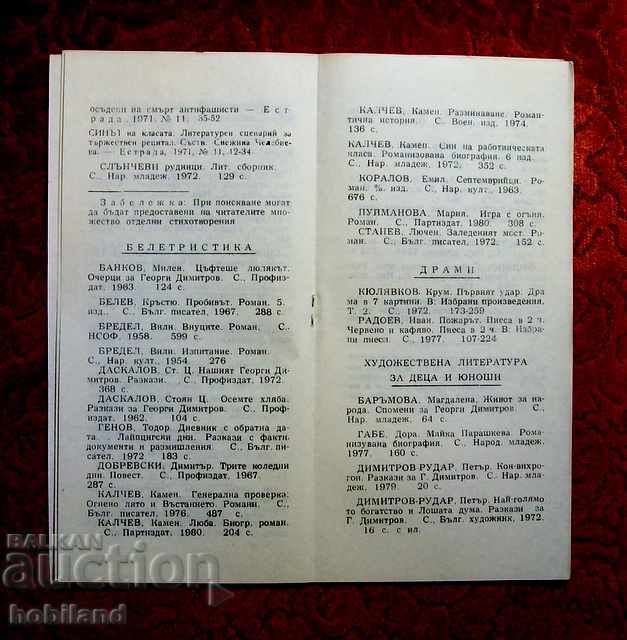 осъдени на смърт антифашисти — Е с т
р а д а, 1971, № 11, 35-52
СИНЪТ на класата. Литературен сценарий за
тържествен рецитал. Съств. Снежина Челебие-
ва. — Естрада, 1971, № 11, 12-34.
СЛЪНЧЕВИ рудници. Лит. сборник.
С., Нар. младеж. 1972. 129 с.
З а б е л е ж к а: При поискване могат
да бъдат предоставени на читателите мно-
жество отделни стихотворения
БЕЛЕТРИСТИКА
БАНКОВ, Милен. Цъфтеше люлякът.
Очерци за Георги Димитров. С., Профиз-
дат. 1963. 124 с.
БЕЛЕВ, Кръстю. Пробивът. Роман. 5.
изд. С., Бълг. писател, 1967. 288 с.
БРЕДЕЛ, Вили. Внуците. Роман. С.,
НСОФ, 1958. 599 с.
БРЕДЕЛ, Вили. Изпитание. Роман.
С., Нар. култ., 1954. 276 с.
ДАСКАЛОВ, Ст. Ц. Нашият Георги Ди-
митров. Разкази. С., Профиздат, 1972.
368 с.
ДАСКАЛОВ, Стоян Ц. Осемте хляба.
Разкази за Георги Димитров. С., Проф-
издат, 1962. 104 с.
ГЕНОВ, Тодор. Дневник с обратна да-
та. Лайпцигски дни. Разкази с факти,
документи и размишления. С., Бълг. писа-
тел. 1972 183 с.
ДОБРЕВСКИ, Димитър. Трите коледни
дни. Повест. С., Профиздат, 1967.
287 с.
КАЛЧЕВ, Камен. Генерална проверка.
Огнено лято и Въстанието. Романи. С.,
Бълг. писател, 1976. 487 с.
КАЛЧЕВ, Камен. Люба. Биогр. роман.
С., Партиздат. 1980. 204 с.
КАЛЧЕВ, Камен. Разминаване. Роман-
тична история. С. Воен. изд. 1974.
136 с.
КАЛЧЕВ, Камен. Син на работническата
класа. Романизована биография. 6 изд.
С., Нар. младеж, 1972. 352 с.
КОРАЛОВ, Емил. Септемврийци. Ро-
ман. изд. С., Нар. култ., 1963.
676 с.
ПУЙМАНОВА, Мария. Игра с огъня.
Роман. С., Партиздат, 1980. 308 с.
СТАНЕВ, Лючен. Заледеният мост. Ро-
ман. С., Бълг. писател, 1972. 152 с.
ДРАМИ
КЮЛЯВКОВ, Крум. Първият удар: Дра-
ма в 7 картини. В: Избрани произведения.
Т. 2. С., 1972. 173-259
РАДОЕВ, Иван. Пожарът. Пиеса в 2 ч.
Червено и кафяво. Пиеса в 2 ч. В: Избра-
ни пиеси. С., 1977. 107-224
ХУДОЖЕСТВЕНА ЛИТЕРАТУРА
ЗА ДЕЦА И ЮНОШИ
БАРЪМОВА, Магдалена, Живот за на-
рода. Спомени за Георги Димитров. С.,
Нар. младеж, 64 с.
ГАБЕ, Дора. Майка Парашкева. Рома-
низувана биография. С., Народ. младеж.
1977. 160 с.
ДИМИТРОВ-РУДАР, Петър. Кон-вихро-
гон. Разкази за Г. Димитров. С., Нар. мл-
адеж. 1979. 20 с.
ДИМИТРОВ-РУДАР, Петър. Най-голямо-
то богатство и Лошата дума. Разкази за
Г. Димитров. С., Бълг. художник, 1972.
16 с. с ил.
BALKAN
auction
hobiland